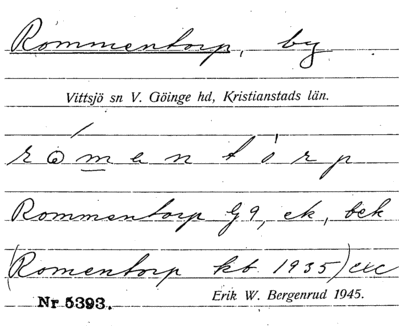 Rommentorp, by
Vittsjö sn V. Göinge hd, Kristianstads län.
Rommentorp G 9, ek, bek
(Romentorp kb 1935) exc
Nr 5393. Erik W. Bergenrud 1945.